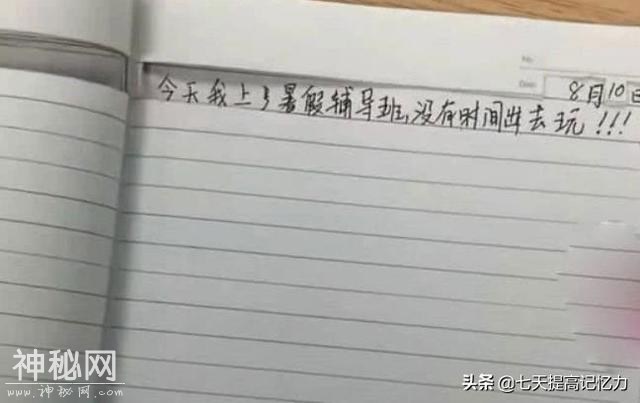 No
Date
8月10日
今天我上了暑假辅导班,没有时间出去玩!!!
神秘网
www.神秘网.com
头条 @七天提高记忆力